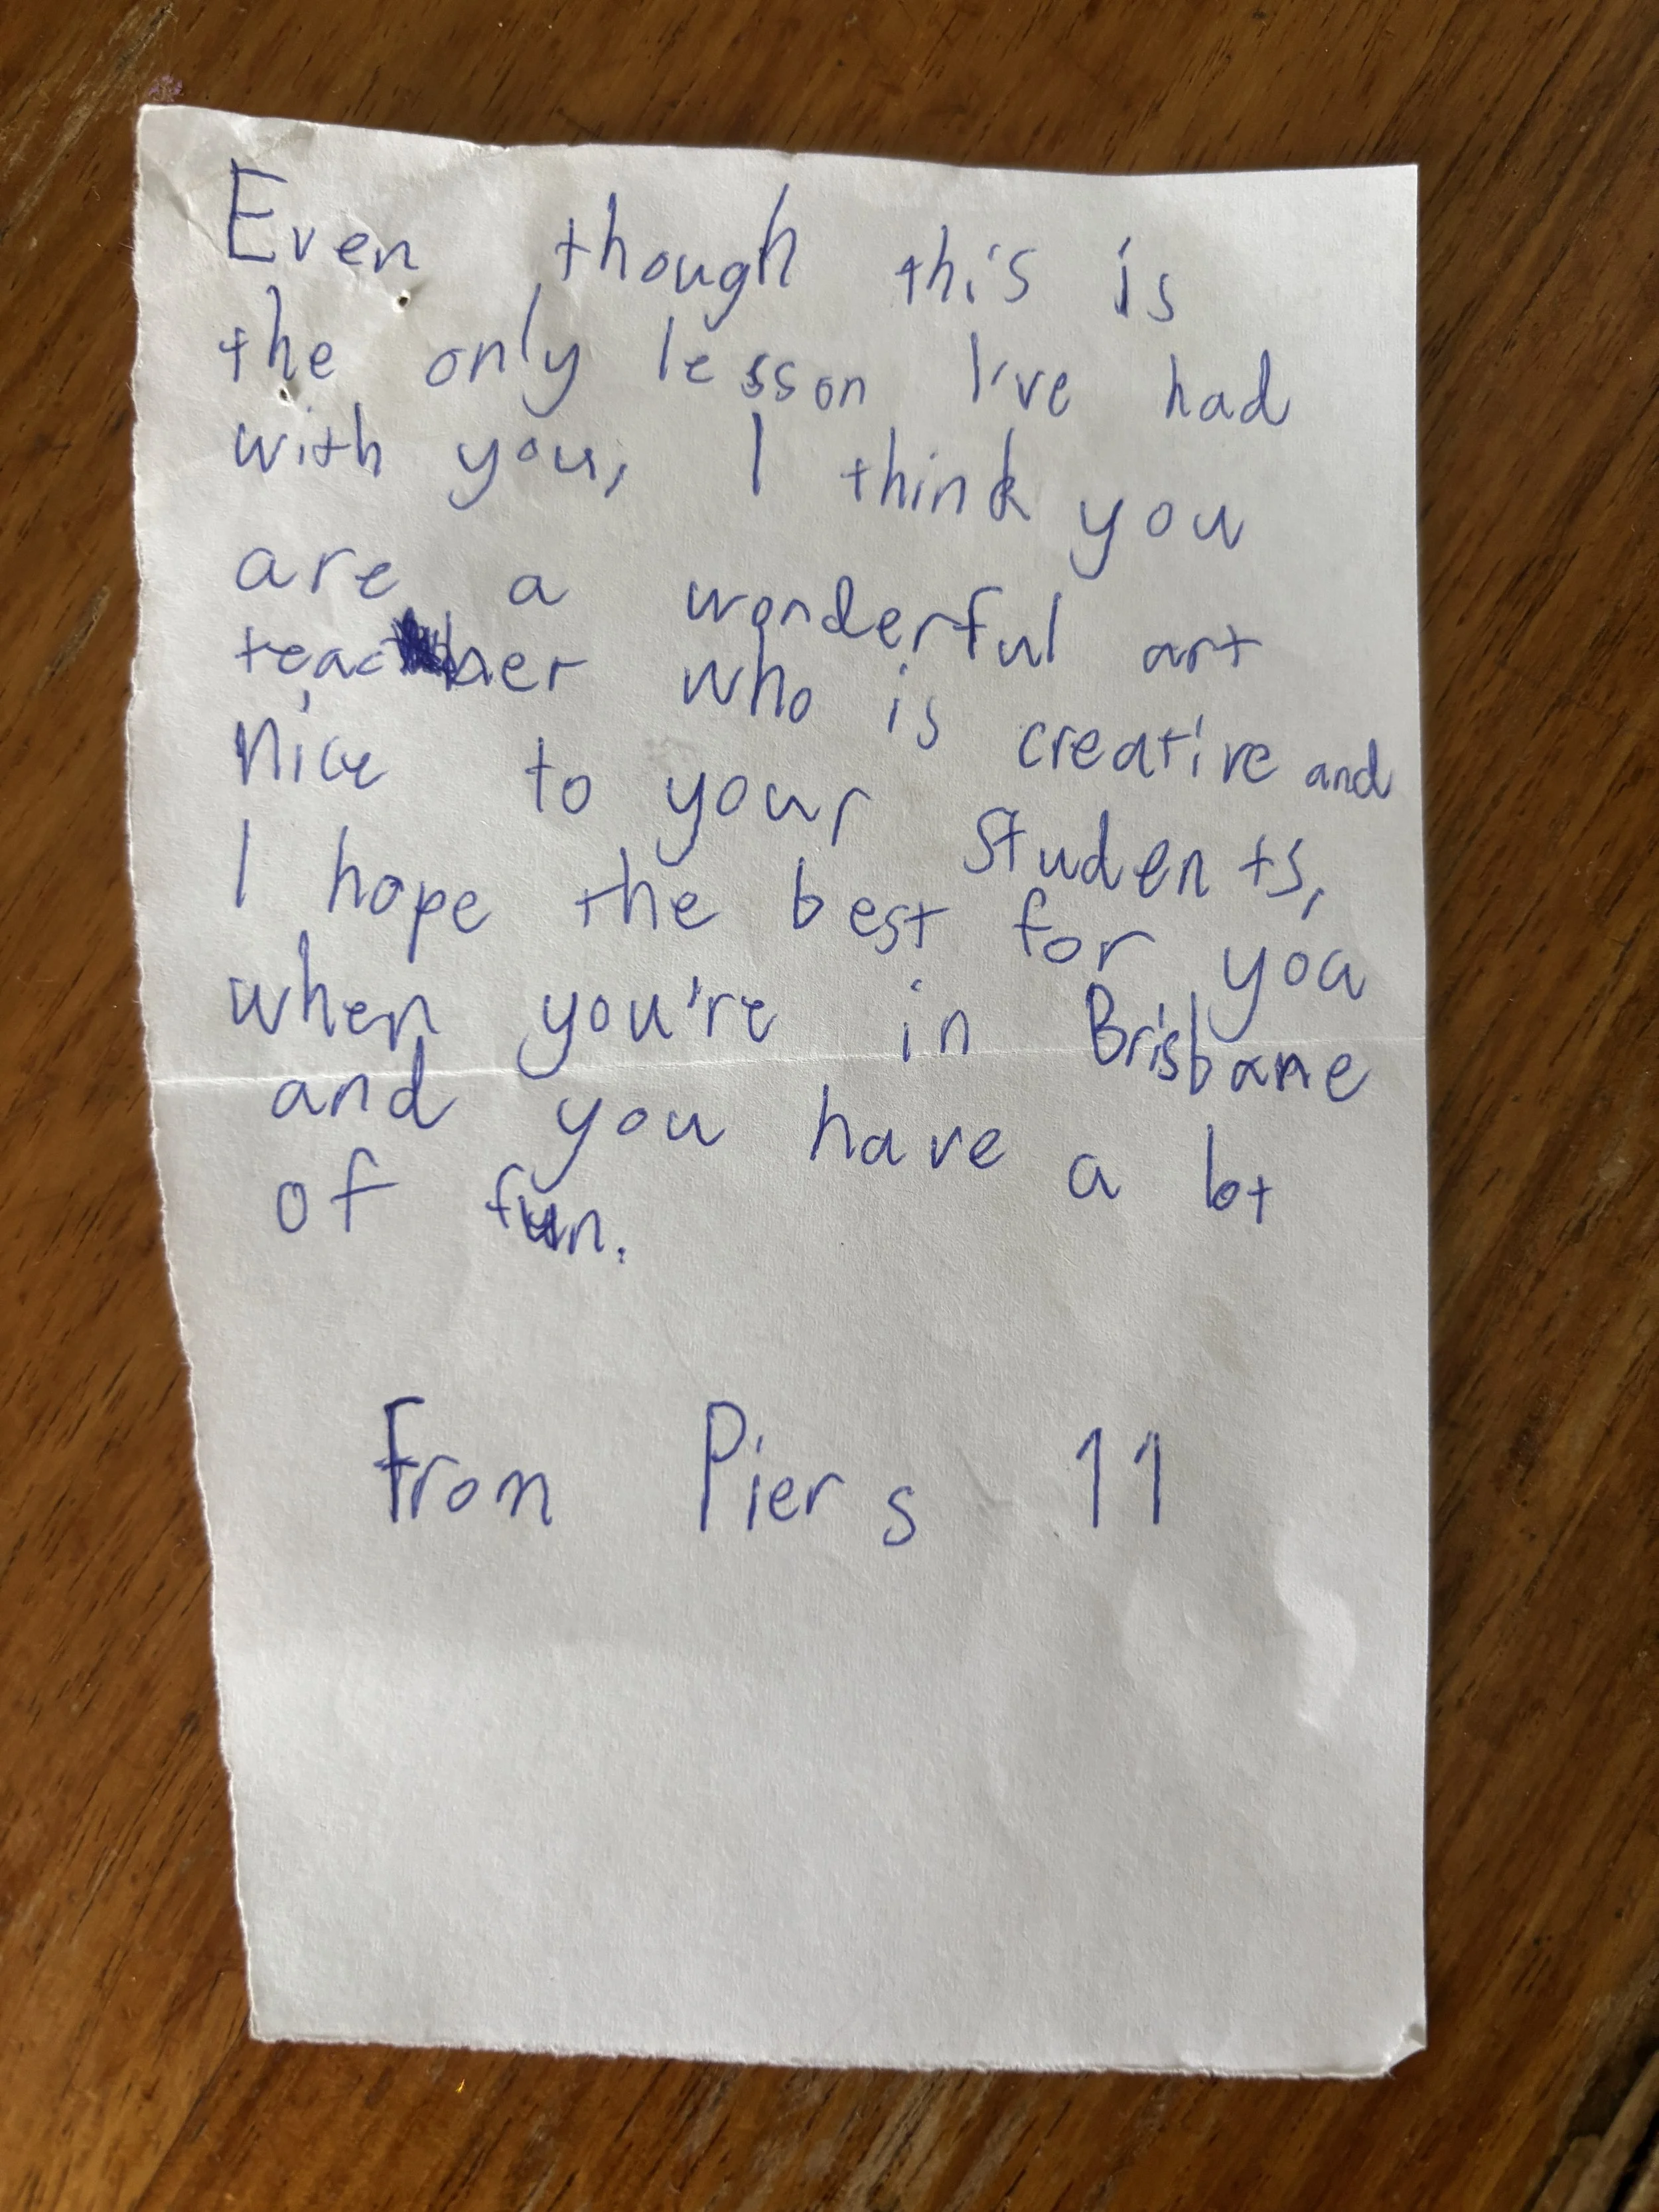 Even though this is
the only lesson I've had
with you, I think you
are a wonderful art
teacher who is creative and
nice to your students,
I hope the best for you
when you're in Brisbane
and you have a lot
of fun.
From Piers 11